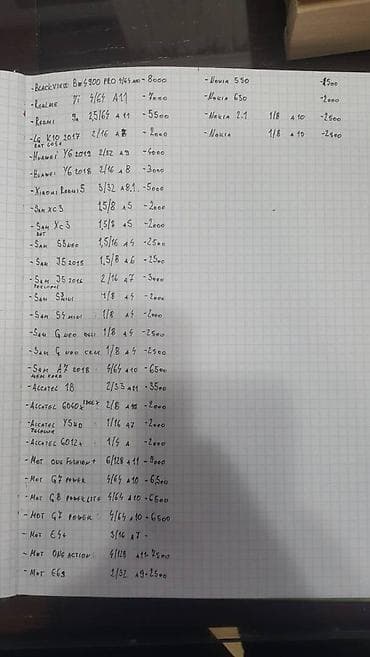 - BLACKVIEW BV4900 PRO 4/64 A10 - 8000
- REALME 7i 4/64 A11 - 7000
- REDMI 9A 2,5/64 A11 - 5500
- LG K10 2017 2/16 A8 - 2000
- HUAWEI Y6 2019 2/32 A9 - 4000
- HUAWEI Y6 2018 2/16 A8 - 3000
- XIAOMI REDMI 5 3/32 A8.1 - 5000
- SAM XC3 1,5/8 A5 - 2000
- SAM XC3 1,5/8 A5 - 2000
- SAM S3 NEO 1,5/16 A4 - 2500
- SAM J5 2015 1,5/8 A6 - 2500
- SAM J5 2016 2/16 A7 - 3000
- SAM S3 MINI 1/8 A4 - 2000
- SAM S4 MINI 1/8 A4 - 2000
- SAM G NEO 1/8 A4 - 2500
- SAM G NEO 1/8 A4 - 2500
- SAM A7 2018 4/64 A10 - 6500
- ALCATEL 1B 2/32 A11 - 3500
- ALCATEL 2/8 - 2000
- ALCATEL 1/16 A7 - 2000
- ALCATEL 1/4 A - 2000
- MOT ONE FUSION + 6/128 A11 - 9000
- MOT G7 POWER 4/64 A10 - 6500
- MOT G8 POWER LITE 4/64 A10 - 6500
- MOT G7 POWER 4/64 A10 - 6500
- MOT E4+ 3/16 A7 -
- MOT ONE ACTION 4/128 A11 - 7500
- MOT 2/32 A9 - 2500
- NOKIA 530 - 1500
- NOKIA 630 - 2000
- NOKIA 2.1 1/8 A10 - 2500
- NOKIA 1/8 A10 - 2500